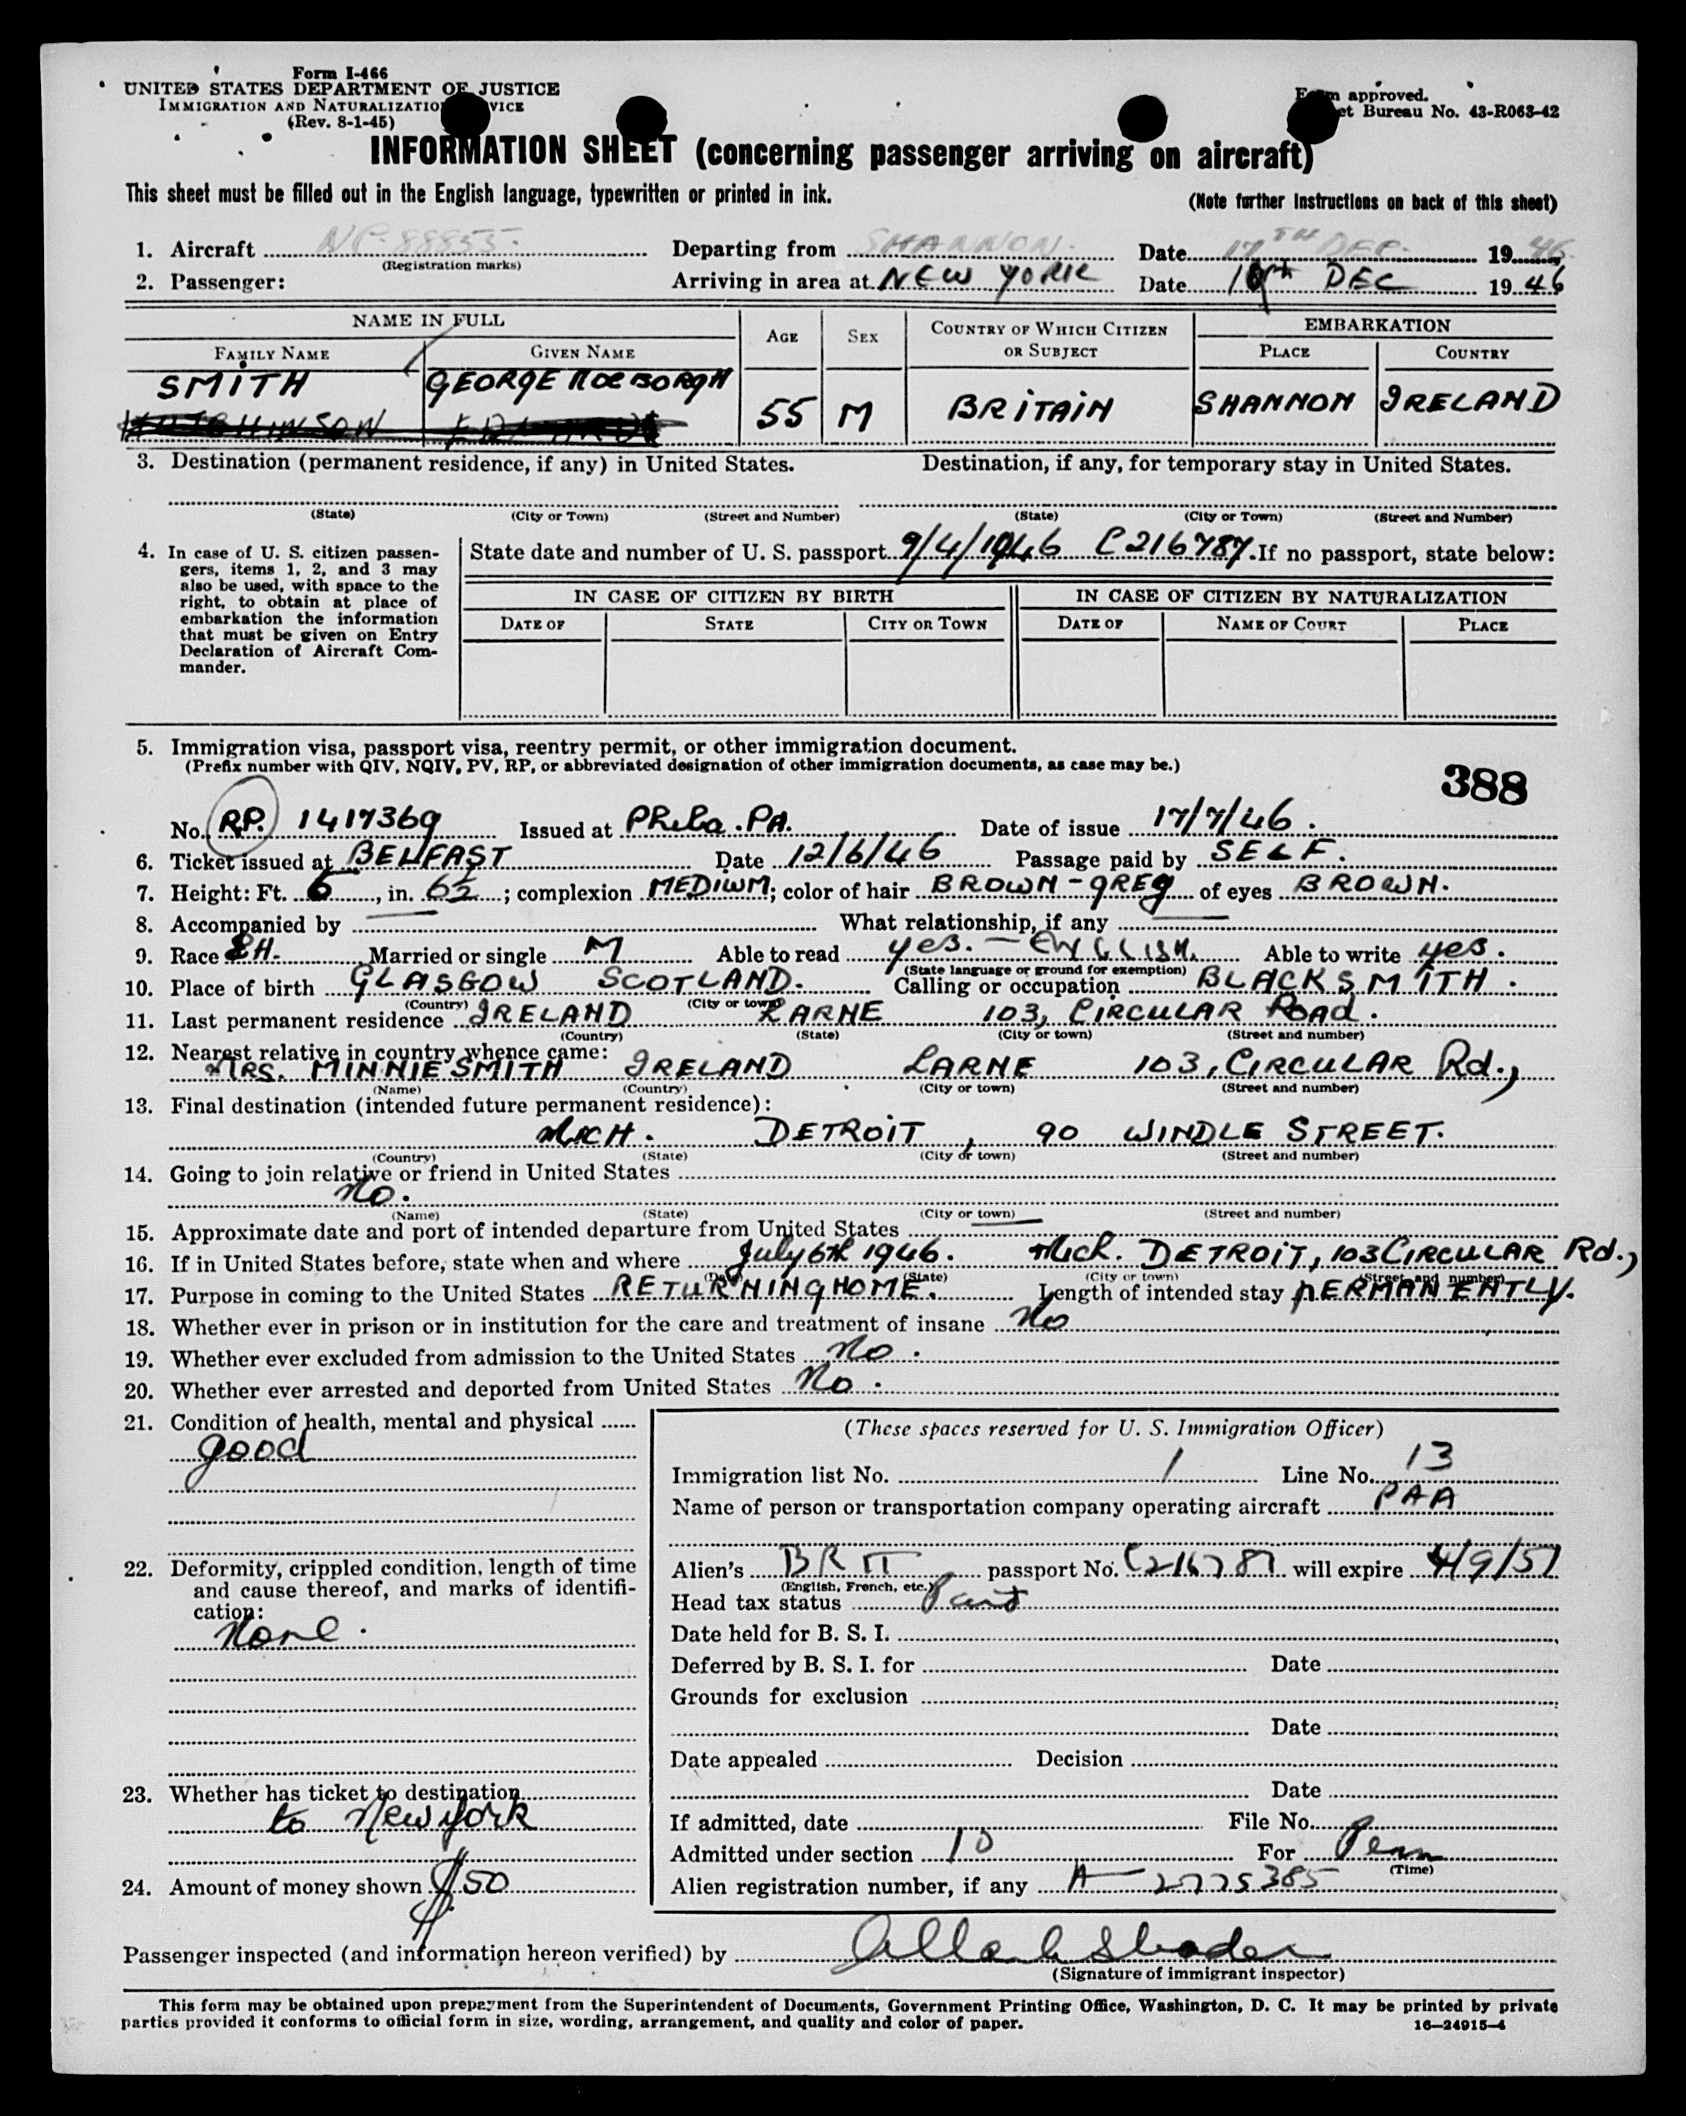 Form I-466
UNITED STATES DEPARTMENT OF JUSTICE
IMMIGRATION AND NATURALIZATION SERVICE
(Rev. 8-1-45)
Form approved.
Budget Bureau No. 43-R063-42
INFORMATION SHEET (concerning passenger arriving on aircraft)
This sheet must be filled out in the English language, typewritten or printed in ink.
(Note further instructions on back of this sheet)
1. Aircraft NC-88855. Departing from SHANNON. Date 17TH DEC. 1946
(Registration marks)
2. Passenger: Arriving in area at NEW YORK Date 18th DEC 1946
NAME IN FULL AGE SEX COUNTRY OF WHICH CITIZEN OR SUBJECT EMBARKATION
FAMILY NAME GIVEN NAME PLACE COUNTRY
SMITH GEORGE 55 M BRITAIN SHANNON IRELAND
HUTCHINSON
3. Destination (permanent residence, if any) in United States. Destination, if any, for temporary stay in United States.
(State) (City or Town) (Street and Number) (State) (City or Town) (Street and Number)
4. In case of U. S. citizen passengers, items 1, 2, and 3 may also be used, with space to the right, to obtain at place of embarkation the information that must be given on Entry Declaration of Aircraft Commander.
State date and number of U. S. passport 9/4/1946 C216787. If no passport, state below:
IN CASE OF CITIZEN BY BIRTH IN CASE OF CITIZEN BY NATURALIZATION
DATE OF STATE CITY OR TOWN DATE OF NAME OF COURT PLACE
5. Immigration visa, passport visa, reentry permit, or other immigration document.
(Prefix number with QIV, NQIV, PV, RP, or abbreviated designation of other immigration documents, as case may be.)
388
No. RP. 1417369 Issued at Phila. PA. Date of issue 17/7/46.
6. Ticket issued at BELFAST Date 12/6/46 Passage paid by SELF.
7. Height: Ft. 5, in. 6½; complexion MEDIUM; color of hair BROWN-GREY of eyes BROWN.
8. Accompanied by — What relationship, if any —
9. Race Married or single M Able to read yes. — ENGLISH. Able to write yes.
(State language or ground for exemption)
10. Place of birth GLASGOW SCOTLAND. Calling or occupation BLACKSMITH.
(Country) (City or town)
11. Last permanent residence IRELAND LARNE 103, CIRCULAR ROAD.
(Country) (State) (City or town) (Street and number)
12. Nearest relative in country whence came:
MRS. MINNIE SMITH IRELAND LARNE 103, CIRCULAR Rd.,
(Name) (Country) (City or town) (Street and number)
13. Final destination (intended future permanent residence):
MICH. DETROIT, 90 WINDLE STREET.
(Country) (State) (City or town) (Street and number)
14. Going to join relative or friend in United States
No.
(Name) (State) (City or town) (Street and number)
15. Approximate date and port of intended departure from United States —
16. If in United States before, state when and where July 6th 1946. Mich. DETROIT, 103 CIRCULAR Rd.,
(Date) (State) (City or town) (Street and number)
17. Purpose in coming to the United States RETURNING HOME. Length of intended stay PERMANENTLY.
18. Whether ever in prison or in institution for the care and treatment of insane No
19. Whether ever excluded from admission to the United States No.
20. Whether ever arrested and deported from United States No.
21. Condition of health, mental and physical
good
(These spaces reserved for U. S. Immigration Officer)
Immigration list No. 1 Line No. 13
Name of person or transportation company operating aircraft PAA
22. Deformity, crippled condition, length of time and cause thereof, and marks of identification:
None.
Alien's BRIT passport No. C216787 will expire 4/9/51
(English, French, etc.)
Head tax status
Date held for B. S. I.
Deferred by B. S. I. for Date
Grounds for exclusion
Date
Date appealed Decision
Date
23. Whether has ticket to destination
to New York
If admitted, date File No.
Admitted under section 10 For Perm
(Time)
24. Amount of money shown $50
Alien registration number, if any A-2775385
Passenger inspected (and information hereon verified) by
(Signature of immigrant inspector)
This form may be obtained upon prepayment from the Superintendent of Documents, Government Printing Office, Washington, D. C. It may be printed by private
parties provided it conforms to official form in size, wording, arrangement, and quality and color of paper.
16—24915-4